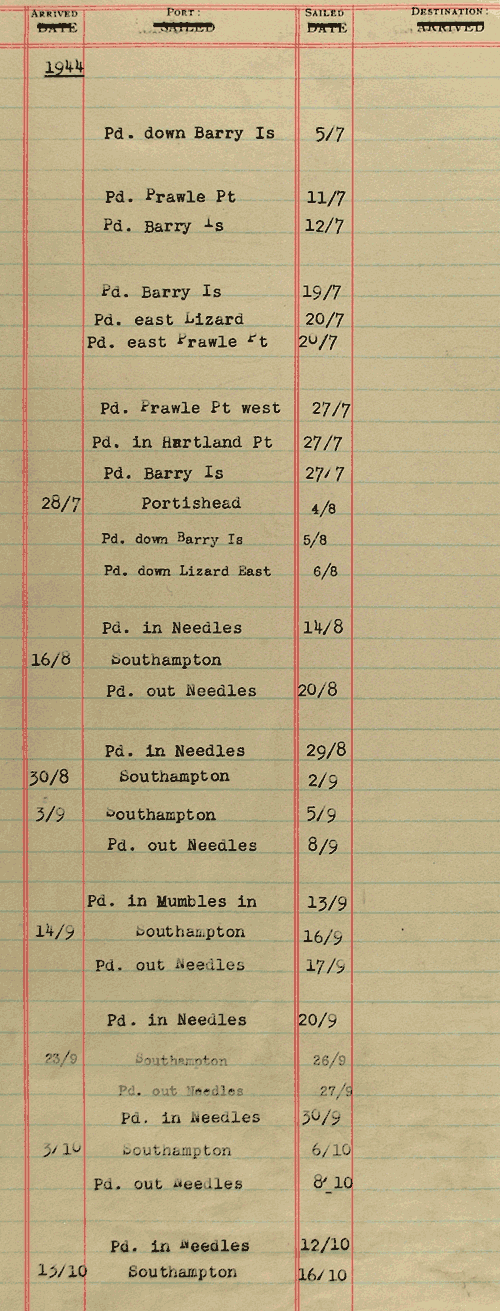 ARRIVED PORT: SAILED DESTINATION:
DATE SAILED DATE ARRIVED
1944
Pd. down Barry Is 5/7
Pd. Prawle Pt 11/7
Pd. Barry Is 12/7
Pd. Barry Is 19/7
Pd. east Lizard 20/7
Pd. east Prawle Pt 20/7
Pd. Prawle Pt west 27/7
Pd. in Hartland Pt 27/7
Pd. Barry Is 27/7
28/7 Portishead 4/8
Pd. down Barry Is 5/8
Pd. down Lizard East 6/8
Pd. in Needles 14/8
16/8 Southampton
Pd. out Needles 20/8
Pd. in Needles 29/8
30/8 Southampton 2/9
3/9 Southampton 5/9
Pd. out Needles 8/9
Pd. in Mumbles in 13/9
14/9 Southampton 16/9
Pd. out Needles 17/9
Pd. in Needles 20/9
23/9 Southampton 26/9
Pd. out Needles 27/9
Pd. in Needles 30/9
3/10 Southampton 6/10
Pd. out Needles 8/10
Pd. in Needles 12/10
13/10 Southampton 16/10